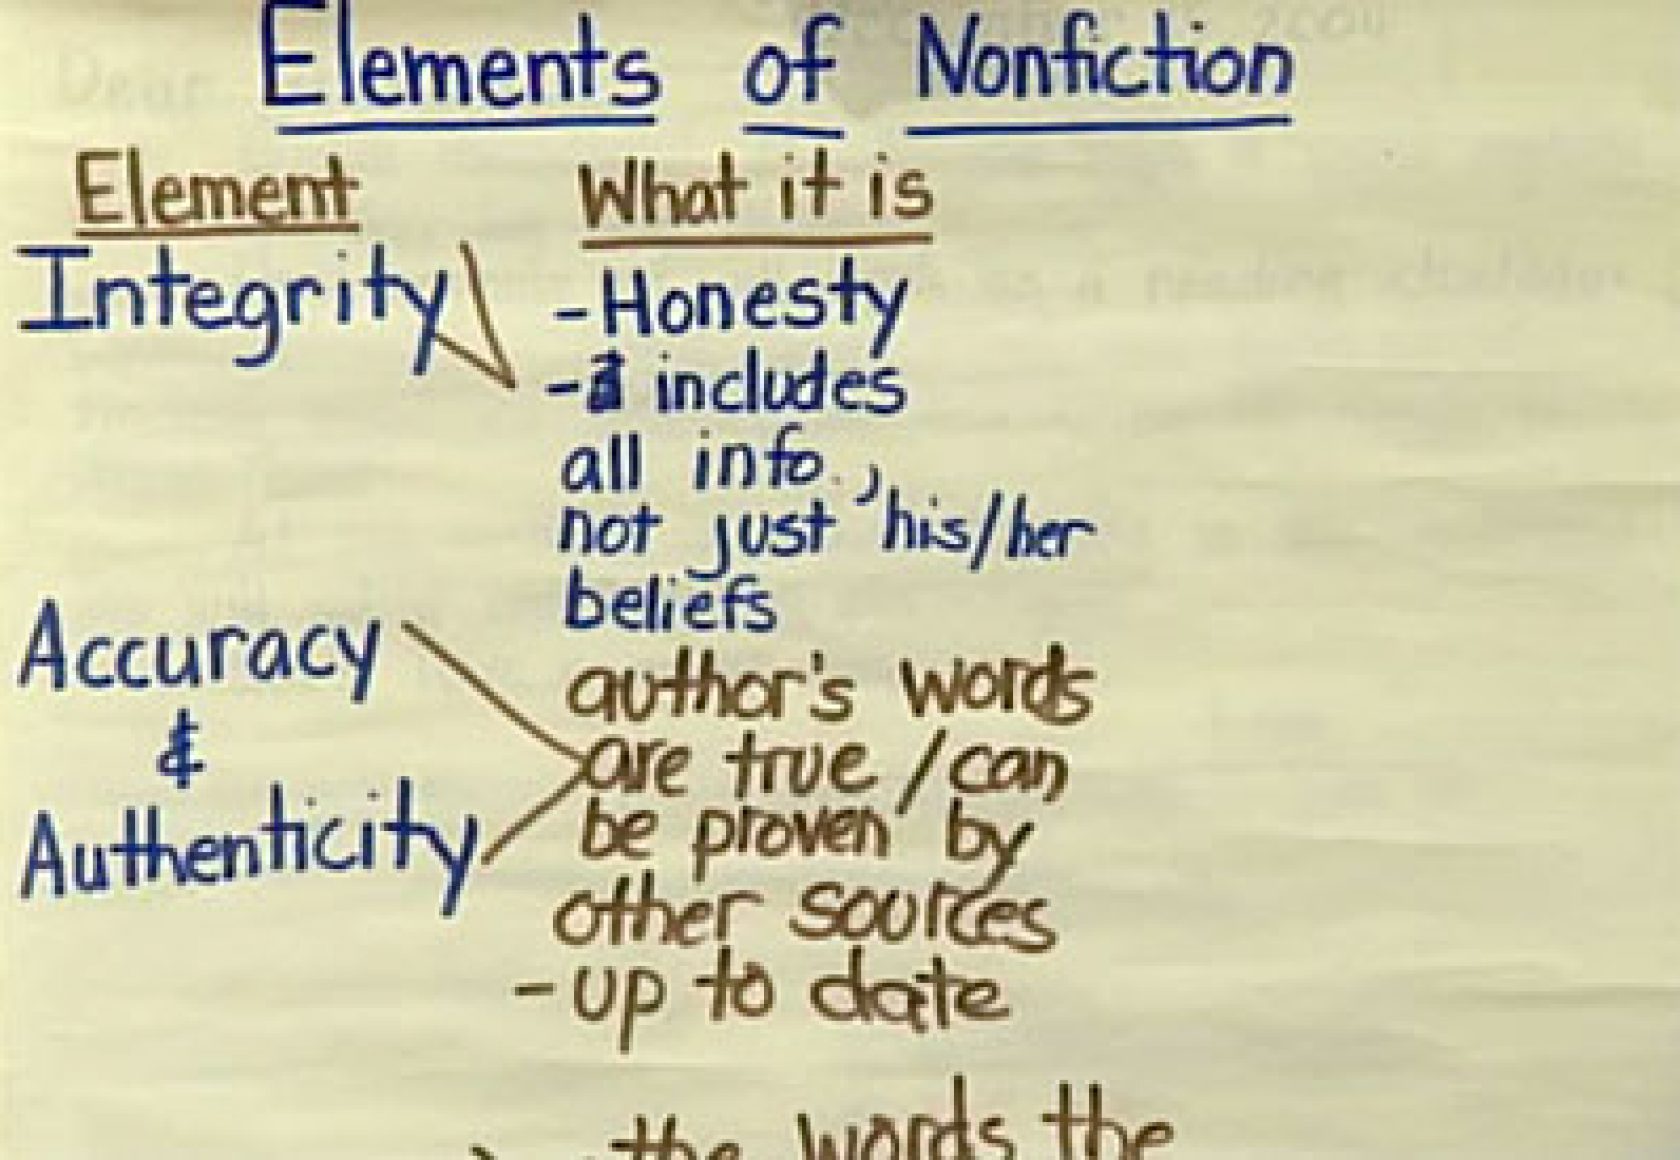 Elements of Nonfiction
Element What it is
Integrity -Honesty
- includes
all info.,
not just his/her
beliefs
Accuracy author's words
& are true / can
Authenticity be proven by
other sources
-up to date
the words the